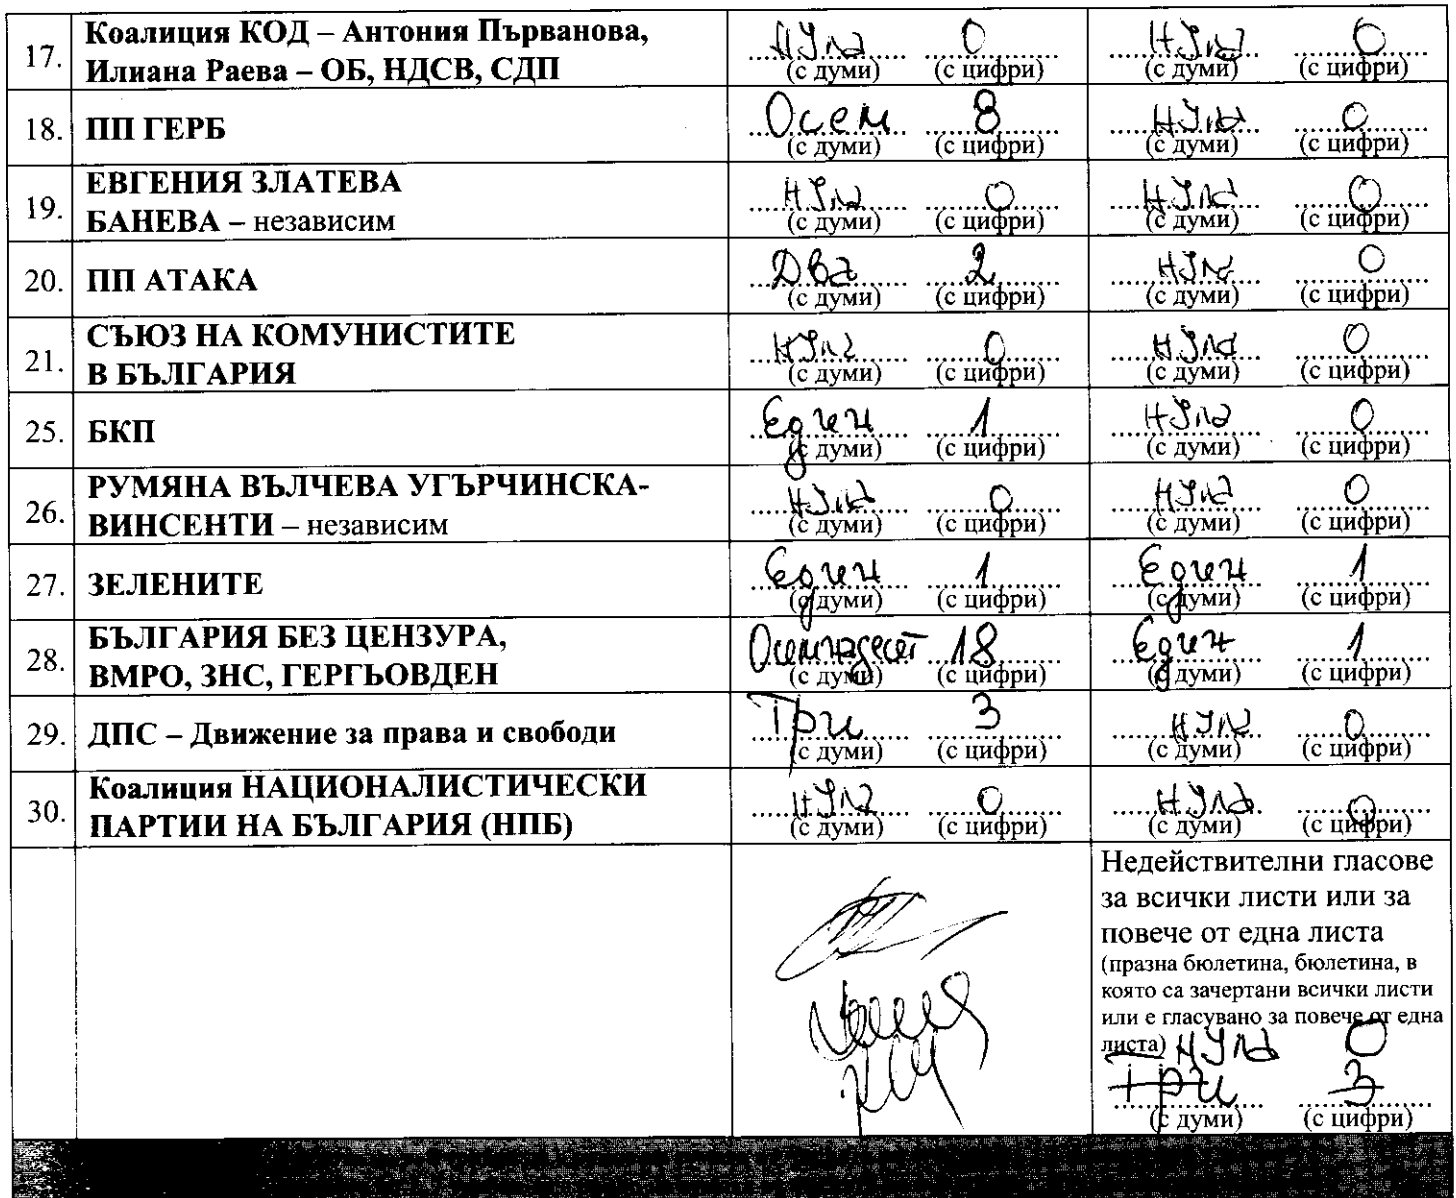 17. Коалиция КОД – Антония Първанова,
Илиана Раева – ОБ, НДСВ, СДП
Нула 0 Нула 0
(с думи) (с цифри) (с думи) (с цифри)
18. ПП ГЕРБ
Осем 8 Нула 0
(с думи) (с цифри) (с думи) (с цифри)
19. ЕВГЕНИЯ ЗЛАТЕВА
БАНЕВА – независим
Нула 0 Нула 0
(с думи) (с цифри) (с думи) (с цифри)
20. ПП АТАКА
Два 2 Нула 0
(с думи) (с цифри) (с думи) (с цифри)
21. СЪЮЗ НА КОМУНИСТИТЕ
В БЪЛГАРИЯ
Нула 0 Нула 0
(с думи) (с цифри) (с думи) (с цифри)
25. БКП
Един 1 Нула 0
(с думи) (с цифри) (с думи) (с цифри)
26. РУМЯНА ВЪЛЧЕВА УГЪРЧИНСКА-
ВИНСЕНТИ – независим
Нула 0 Нула 0
(с думи) (с цифри) (с думи) (с цифри)
27. ЗЕЛЕНИТЕ
Един 1 Един 1
(с думи) (с цифри) (с думи) (с цифри)
28. БЪЛГАРИЯ БЕЗ ЦЕНЗУРА,
ВМРО, ЗНС, ГЕРГЬОВДЕН
Осемнадесет 18 Един 1
(с думи) (с цифри) (с думи) (с цифри)
29. ДПС – Движение за права и свободи
Три 3 Нула 0
(с думи) (с цифри) (с думи) (с цифри)
30. Коалиция НАЦИОНАЛИСТИЧЕСКИ
ПАРТИИ НА БЪЛГАРИЯ (НПБ)
Нула 0 Нула 0
(с думи) (с цифри) (с думи) (с цифри)
Недействителни гласове
за всички листи или за
повече от една листа
(празна бюлетина, бюлетина, в
която са зачертани всички листи
или е гласувано за повече от една
листа) Нула 0
Три 3
(с думи) (с цифри)